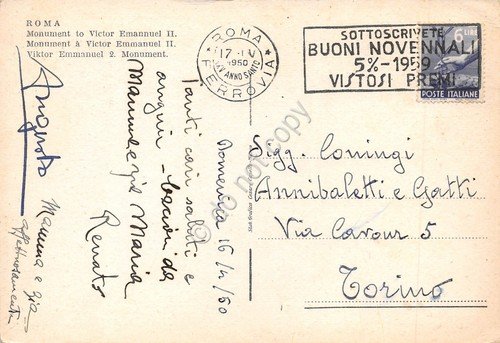 ROMA
Monument to Victor Emannuel II.
Monument à Victor Emmanuel II.
Viktor Emmanuel 2. Monument.
ROMA
FERROVIA
17 IV
1950
XXV ANNO SANTO
SOTTOSCRIVETE
BUONI NOVENNALI
5%-1959
VISTOSI PREMI
6 LIRE
POSTE ITALIANE
Domenica 16/4/50
Tanti cari saluti e
auguri - bacioni da
Mamma e zia Maria
Renato
Augusto
Mamma e zia
affettuosamente
Sigg. Coningi
Annibaletti e Gatti
Via Cavour 5
Torino
do not copy